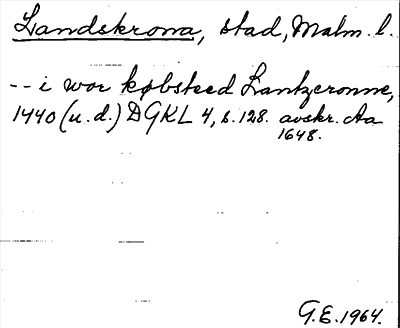 Landskrona, stad, Malm. l.
-- i wor købsteed Lantzcronne,
1440 (u.d.) DGKL 4, s. 128. avskr. Aa
1648.
G.E. 1964.